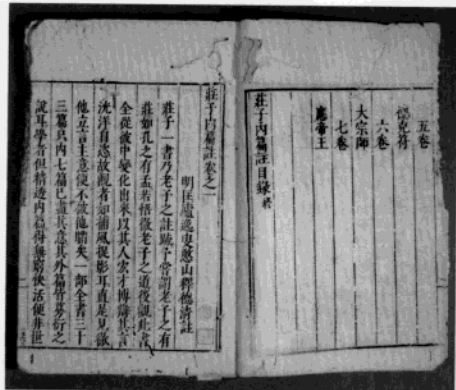 五卷
德充符
六卷
大宗師
七卷
應帝王
莊子內篇註目錄終
莊子內篇註卷之一
明匡廬逸叟憨山釋德清註
莊子一書乃老子之註疏予嘗謂老子之有
莊如孔之有孟若悟徹老子之道後觀此書
全從彼中變化出來以其人宏才博辯其言
洸洋自恣故觀者如捕風捉影耳直是見徹
他立言主意便不被他瞞矣一部全書三十
三篇只內七篇已盡其意其外篇皆蔓衍之
說耳學者但精透內篇得無窮快活便非世